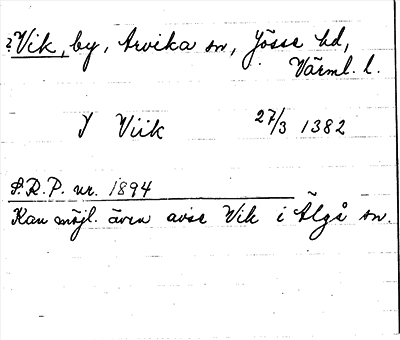 ?Vik, by, Arvika sn, Jösse hd,
Värml. l.
I Viik 27/3 1382
S.R.P. nr. 1894
Kan möjl. även avse Vik i Älgå sn.